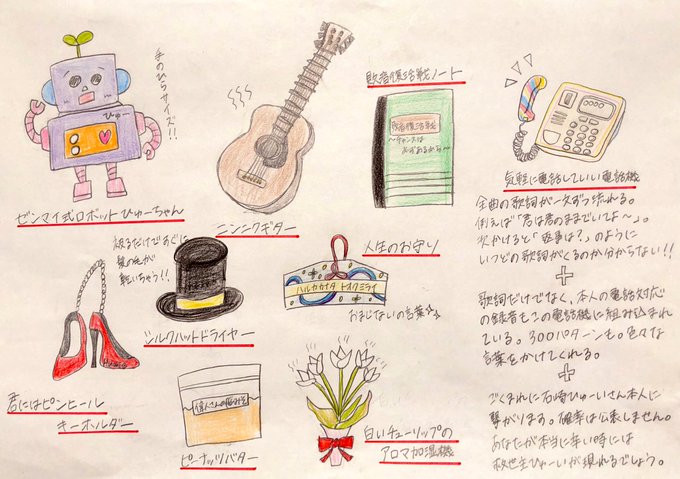 手のひらサイズ!!
ひゅー
ゼンマイ式ロボットひゅーちゃん
ニンニクギター
敗者復活戦ノート
敗者復活戦
〜チャンスは
必ずあるから〜
気軽に電話していい電話機
全曲の歌詞が一文ずつ流れる。
例えば「君は君のままでいてよ〜」。
次かけると「返事は?」のように
いつどの歌詞がくるのか分からない!!
+
歌詞だけでなく、本人の電話対応
の録音もこの電話機に組み込まれ
ている。300パターンも。色々な
言葉をかけてくれる。
+
ごくまれに石崎ひゅーいさん本人に
繋がります。確率は公表しません。
あなたが本当に辛い時には
救世主ひゅーいが現れるでしょう。
被るだけですぐに
髪の毛が
乾いちゃう!!
シルクハットドライヤー
人生のお守り
ハルカカナタ トオクミライ
おまじないの言葉☆☆
君にはピンヒール
キーホルダー
偉人さんの脳みそ
ピーナッツバター
白いチューリップの
アロマ加湿機